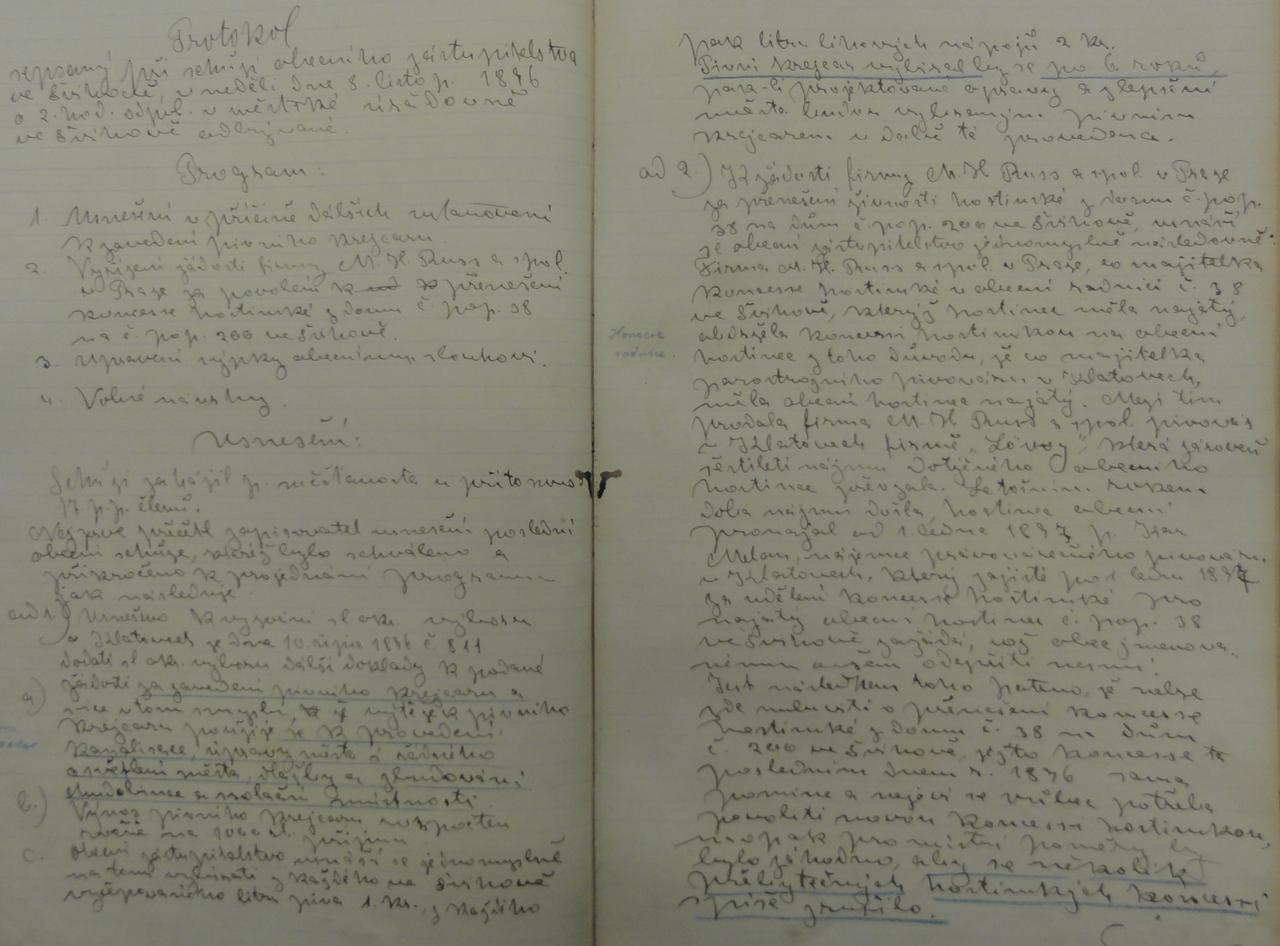 Protokol
sepsaný při schůzi obecního zastupitelstva
ve Švihově, v neděli dne 8. listop. 1896
o 2. hod. odpol. v městské úřadovně
ve Švihově odbývané.
Program:
1. Usnešení v příčině dalších ustanovení
k zavedení pivního krejcaru.
2. Vyřízení žádosti firmy M. H. Russ a spol.
v Praze za povolení k přenešení
koncesse hostinské z domu č. pop. 38
na č. pop. 200 ve Švihově.
3. Upravení výpky obecnímu slouhovi.
4. Volné návrhy.
Usnešení:
Schůzi zahájil p. místostarosta u přítomnos
17 pp. členů.
Nejprve přečetl zapisovatel usnešení poslední
obecní schůze, kteréž bylo schváleno a
přikročeno k projednání programu
jak následuje:
ad 1.) Usnešeno k vyzvání sl. okr. výboru
v Klatovech ze dne 10. října 1896 č 811
dodati sl. okr. výboru další doklady k podané
a) žádosti za zavedení pivního krejcaru a
sice v tom smyslu, že výtěžek pivního
krejcaru použije se k provedení
kanalisace, úpravy města a řádného
osvětlení města, dlažby a zbudování
chudobince a isolační místnosti.
b.) Výnos pivního krejcaru rozpočten
ročně na 1000 zl. příjmu.
c. Obecní zastupitelstvo usnáší se jednomyslně
na tom vybírati z každého ve Švihově
vyčepovaného litru piva 1. kr., z každého
pak litru lihových nápojů 2 kr.
Pivní krejcar vybíral by se po 6 roků,
jak-li projektované opravy a zlepšení
města budou vybraným pivním
krejcarem v době té provedena.
ad 2.) K žádosti firmy M. H. Russ a spol. v Praze
za přenešení živnosti hostinské z domu č. pop.
38 na dům č. pop. 200 ve Švihově, usnáší
se obecní zastupitelstvo jednomyslně následovně:
Firma M. H. Russ a spol. v Praze, co majitelka
koncesse hostinské v obecní radnici č. 38
ve Švihově, kterýž hostinec měla najatý,
Koncese
radnice.
obdržela koncessi hostinskou na obecní
hostinec z toho důvodu, že co majitelka
parostrojního pivováru v Klatovech,
měla obecní hostinec najatý. Mezi tím
prodala firma M. H. Russ a spol. pivovár
v Klatovech firmě "Lövy", která zároveň
šestiletí nájmu dotyčného obecního
hostince převzala. Letošním rokem
doba nájmu došla, hostinec obecní
pronajal od 1. ledna 1897 p. Isac
Melan, nájemce právovárečného pivováru
v Klatovech, který zajisté po 1. lednu 1897
za udělení koncesse hostinské pro
najatý obecní hostinec č. pop. 38
ve Švihově zažádá, což obec jmenova-
nému ovšem odepříti nesmí.
Jest následkem toho patrno, že nelze
zde mluviti o přenešení koncesse
hostinské z domu č. 38 na dům
č. 200 ve Švihově, ježto koncesse ta
posledním dnem r. 1896 sama
pomine a nejeví se vůbec potřeba
povoliti novou koncessi hostinskou,
naopak pro místní poměry by
bylo záhodno, aby se několik
přebytečných hostinských koncessí
spíše zrušilo.